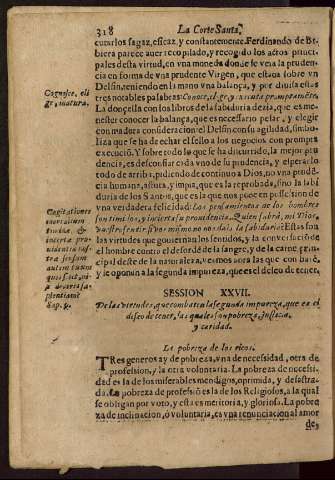 318
La Corte Santa,
cutarlos sagaz, eficaz, y constantemente. Ferdinando de Be-
biera parece auer recopilado, y recogido los actos principa-
les desta virtud, en vna moneda donde se veia la pru-
dencia en forma de vna prudente Virgen, que estaua sobre vn
Delfin, teniendo en la mano vna balança, y por diuisa estas
tres notables palabras: Conoce, elige, y executa promptamēte.
La donçella con los libros de la sabiduria dezia, que es me-
nester conocer la balança, que es necessario pesar, y elegir
con madura consideracion: el Delfin su agilidad, simbo-
liza que se ha de echar el sello a los negocios con prompta
execució. Y sobre todo lo que se ha discurrido, la mejor pru-
dencia, es desconfiar cada vno de su prudencia, y esperarlo
todo de arriba, pidiendo de continuo a Dios, no vna prudē-
cia humana, astuta, y impia, que es la reprobada, sino la sabi-
duria de los Santos, que es la que nos pone en possession de
vna verdadera felicidad: Los pensamientos de los hombres
son timidos, y incierta su prouidencia. Quien sabrá, mi Dios,
vuestro sentir, si vos mismo no nos dais la sabiduria? Estas son
las virtudes que gouiernan los sentidos, y la conuersació de
el hombre contra el desorden de la sangre, y de la carne prin-
cipal peste de la naturaleza, veamos aora las que con baté,
y se oponen a la segunda impureza, que es el deseo de tener.
Cognosce, eli
ge, matura.
Cogitationes
mortalium
timidæ, &
incertæ pro-
uidentiæ nos-
træ sensum
autem tuum
quis sciet, ni-
si dederis sa-
pientiam?
Sap. 9.
SESSION XXVII.
De las virtudes, que combaten la segunda impureza, que es el
deseo de tener, las quales son pobreza, Iusticia,
y caridad.
La pobreza de los ricos.
TRes generos ay de pobreza, vna de necesidad, otra de
profession, y la otra voluntaria. La pobreza de necessi-
dad es la de los miserables mendigos, oprimida, y desastra-
da. La pobreza de professió es la de los Religiosos, a la qual
se obligan por voto, y esta es meritoria, y gloriosa. La pobre
za de inclinacion, ò voluntaria, es vna renunciacion al amor
de,